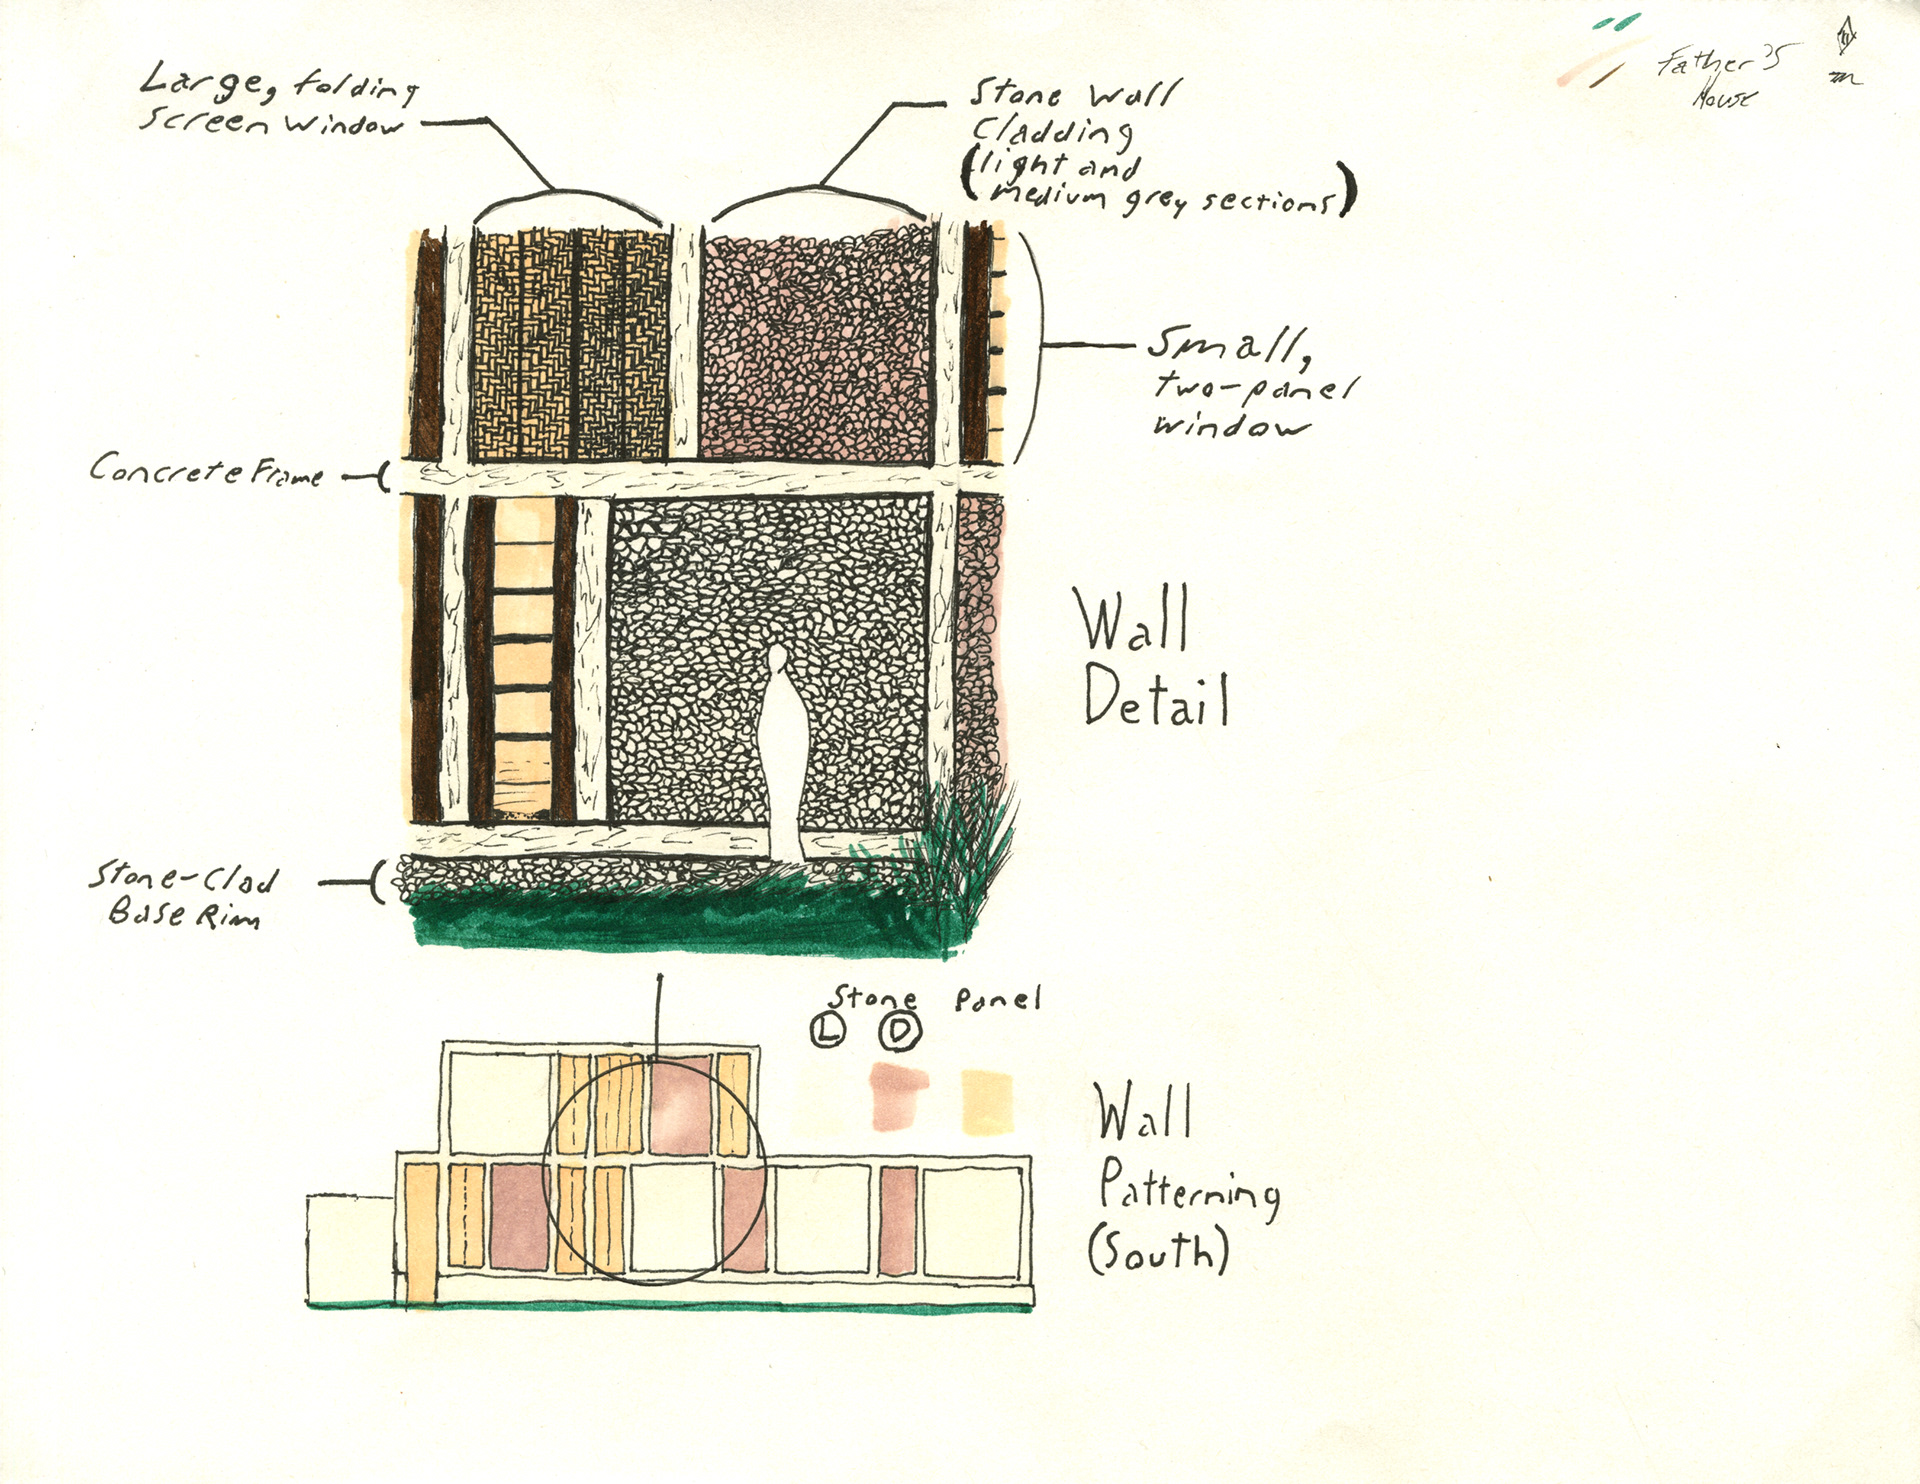 Father's
House
Large, folding
Screen Window
Stone Wall
Cladding
(light and
medium grey sections)
Small,
two-panel
window
Concrete Frame
Wall
Detail
Stone-Clad
Base Rim
Stone Panel
L D
Wall
Patterning
(South)